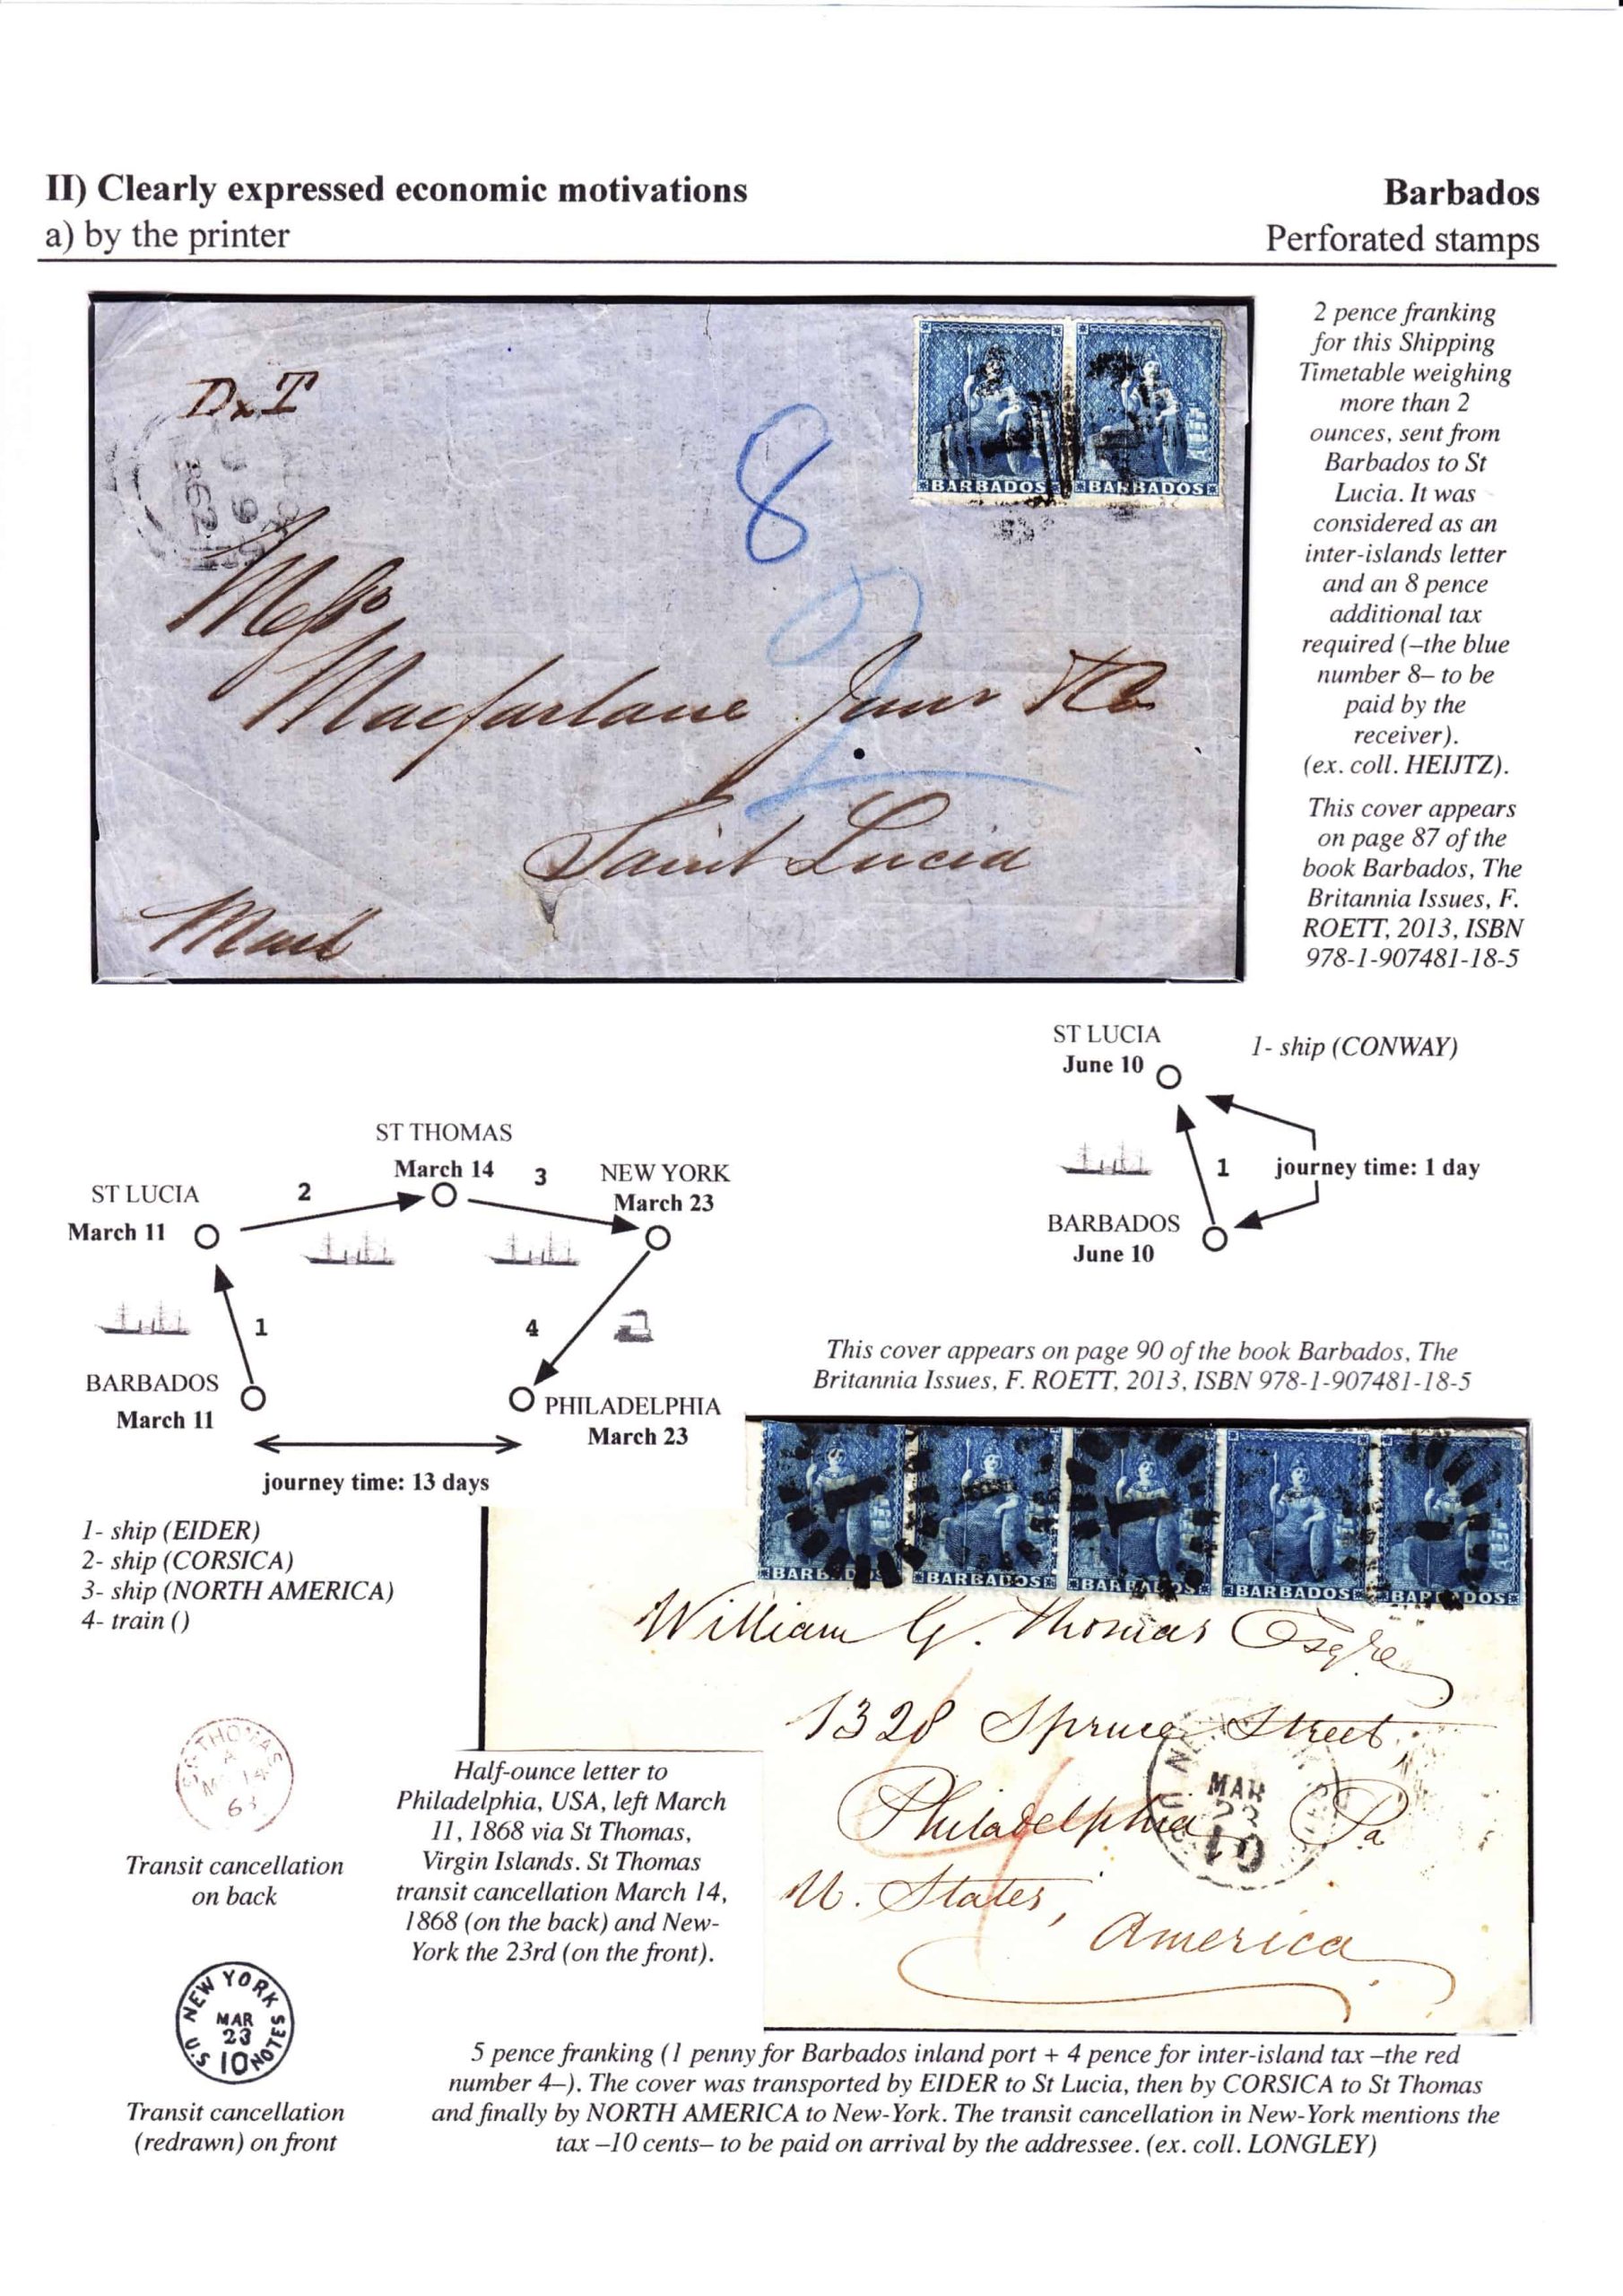 II) Clearly expressed economic motivations
a) by the printer
Barbados
Perforated stamps
BARBADOS BARBADOS
DxT
8
2
Messrs
Macfarlane Junr & Co
Saint Lucia
Mail
2 pence franking
for this Shipping
Timetable weighing
more than 2
ounces, sent from
Barbados to St
Lucia. It was
considered as an
inter-islands letter
and an 8 pence
additional tax
required (–the blue
number 8– to be
paid by the
receiver).
(ex. coll. HEIJTZ).
This cover appears
on page 87 of the
book Barbados, The
Britannia Issues, F.
ROETT, 2013, ISBN
978-1-907481-18-5
ST LUCIA
June 10
1- ship (CONWAY)
1
journey time: 1 day
BARBADOS
June 10
ST THOMAS
March 14
2
3
NEW YORK
March 23
ST LUCIA
March 11
1
4
BARBADOS
March 11
PHILADELPHIA
March 23
journey time: 13 days
1- ship (EIDER)
2- ship (CORSICA)
3- ship (NORTH AMERICA)
4- train ()
This cover appears on page 90 of the book Barbados, The
Britannia Issues, F. ROETT, 2013, ISBN 978-1-907481-18-5
BARBADOS BARBADOS BARBADOS BARBADOS BARBADOS
William G. Thomas Esqre
1328 Spruce Street,
Philadelphia Pa
U. States,
America
4
MAR
23
10
ST THOMAS
A
14
Transit cancellation
on back
Half-ounce letter to
Philadelphia, USA, left March
11, 1868 via St Thomas,
Virgin Islands. St Thomas
transit cancellation March 14,
1868 (on the back) and New-
York the 23rd (on the front).
NEW YORK
MAR
23
U.S 10 NOTES
Transit cancellation
(redrawn) on front
5 pence franking (1 penny for Barbados inland port + 4 pence for inter-island tax –the red
number 4–). The cover was transported by EIDER to St Lucia, then by CORSICA to St Thomas
and finally by NORTH AMERICA to New-York. The transit cancellation in New-York mentions the
tax –10 cents– to be paid on arrival by the addressee. (ex. coll. LONGLEY)